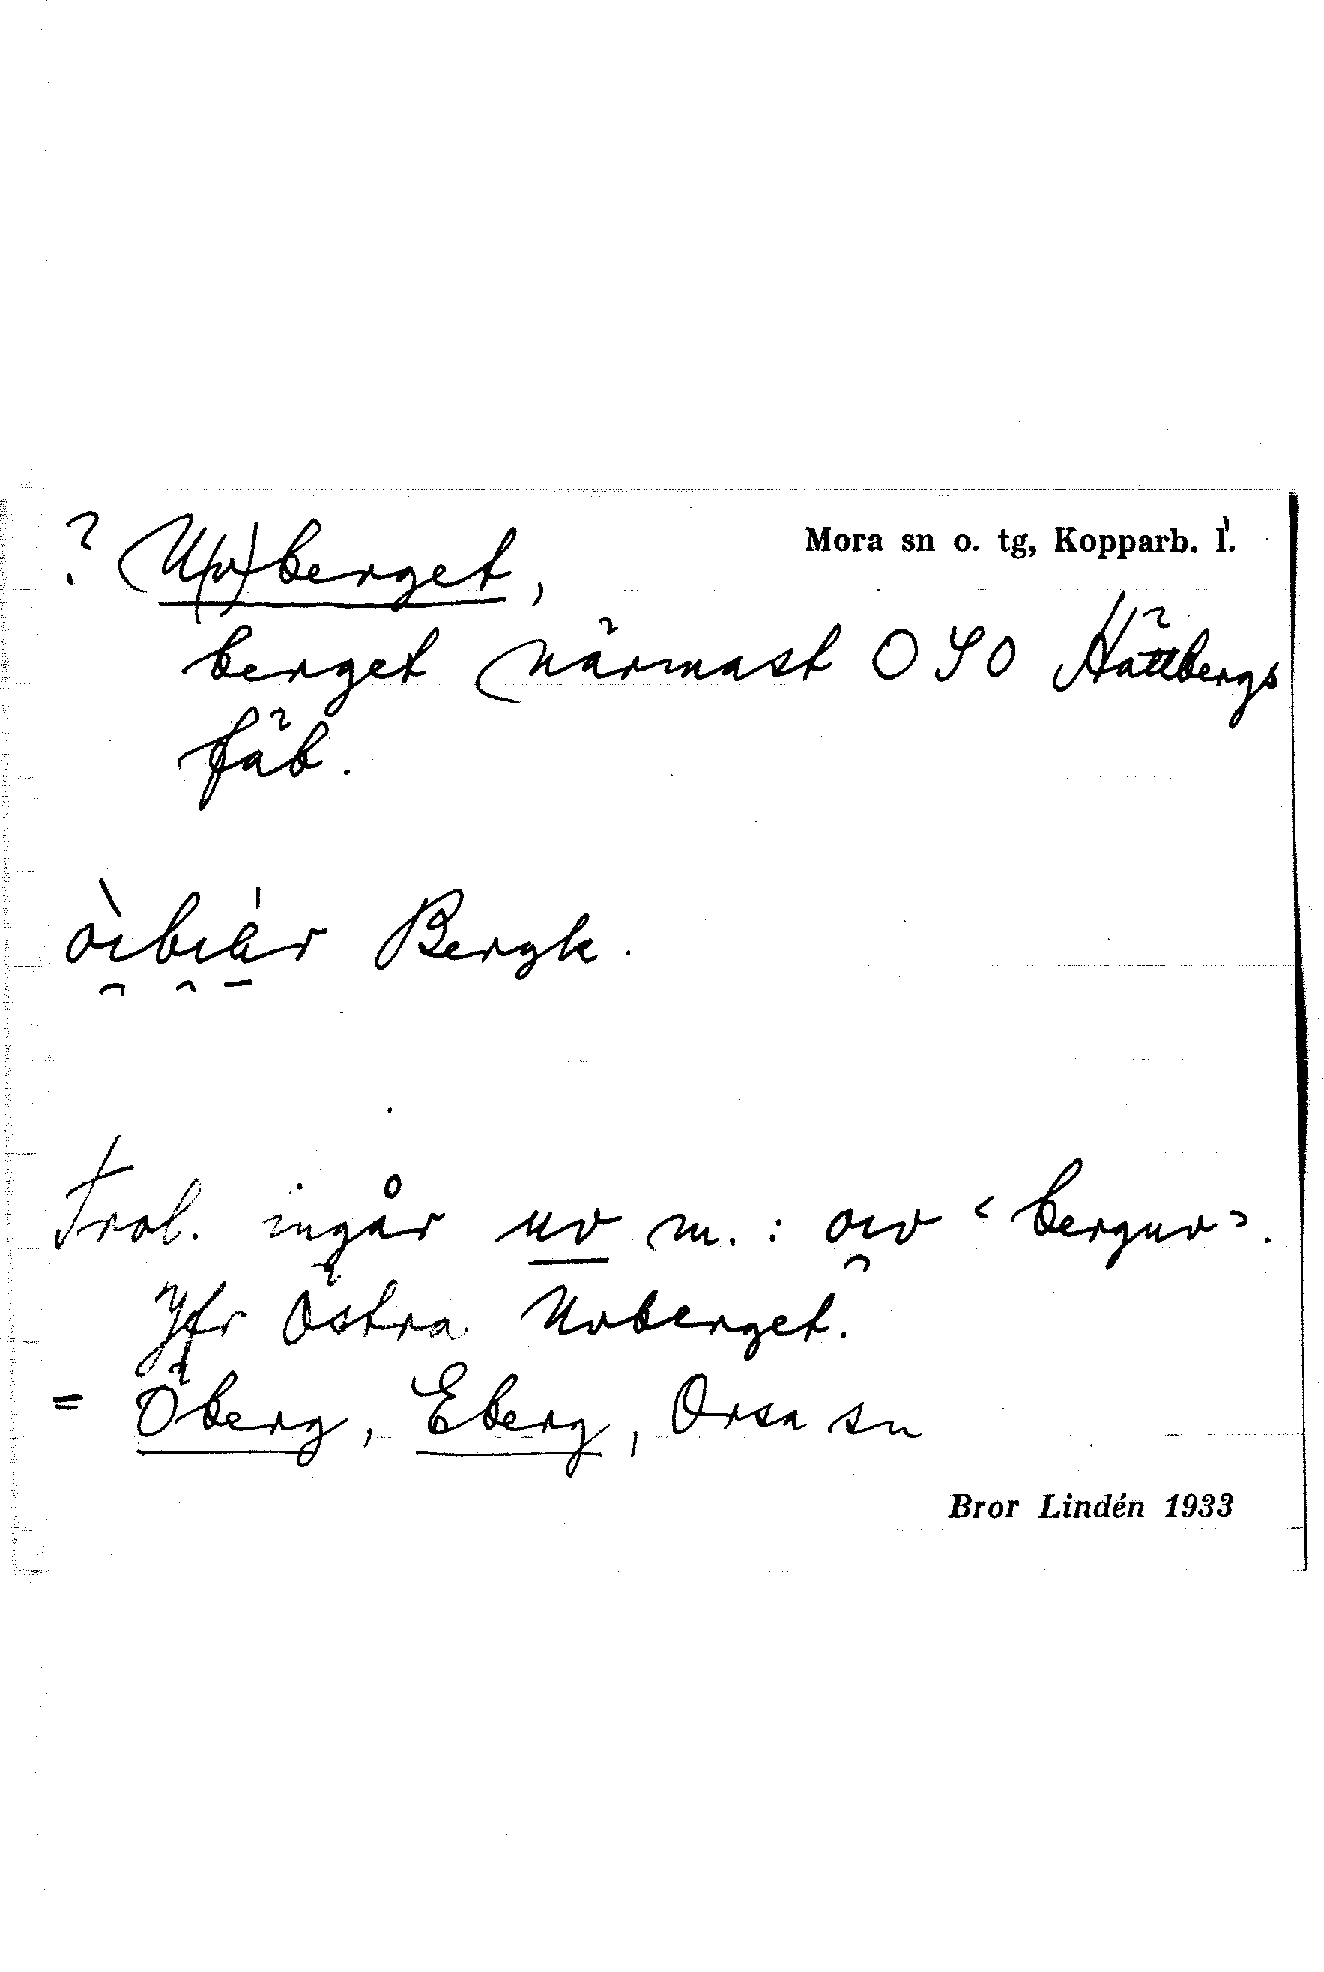 ? U(v)berget,
Mora sn o. tg, Kopparb. l.
berget närmast OSO Hättbergs
fäb.
òibiär Bergk.
Trol. ingår uv m.: oiv ‹berguv›.
Jfr Östra Uvberget.
= Öberg, Eberg, Orsa sn
Bror Lindén 1933